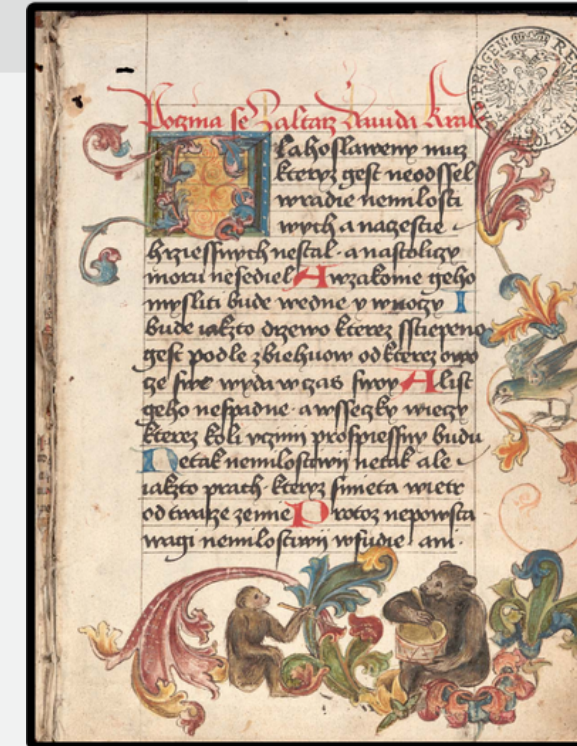 Poczina se Zaltarz Dauida Kral
Blahoslaweny muz
kteryz gest neodssel
wradie nemilosti
wych a nacestie
hrziessnych nestal · a nastoliczy
moru nesediel A wzakonie geho
mysliti bude wedne y wnoczy I
bude iakzto drzewo kterez sstiepeno
gest podle zbiehuow od kterez owo
ze swe wyda wczas swoy A list
geho nespadne · a wsseczky wieczy
kterez koli vczini prospiessny budu
Netak nemilostiwij netak ale
iakzto prach kteryz smieta wietr
od twarze zemie Protoz nepowsta
nemilostiwij wsudie · ani ·
PRAGEN: